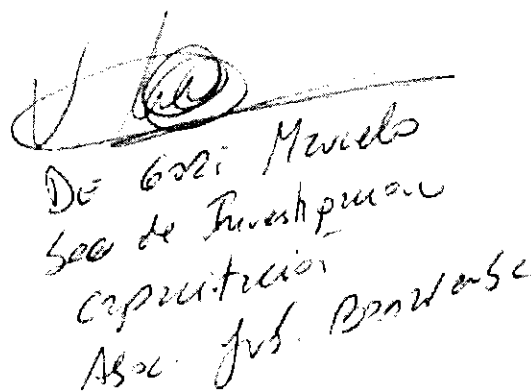 De Gori Marcelo
Sec de Investigacion
capacitación
Asoc. Jud. Bonaerense